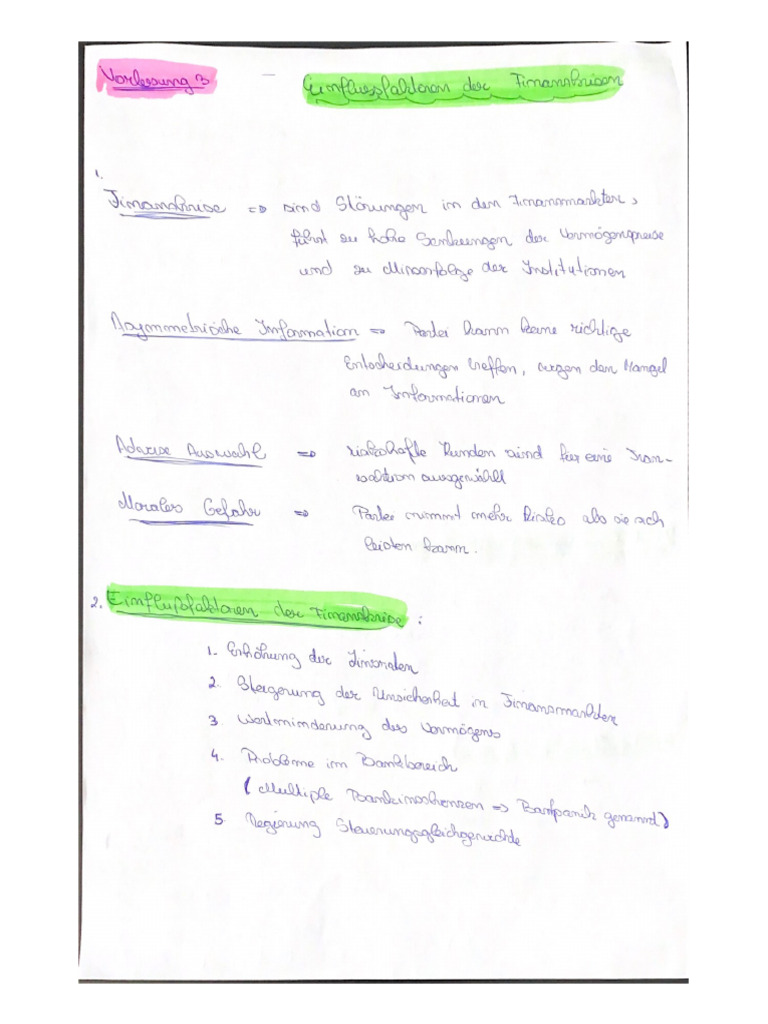 Vorlessung 3 – Einflussfaktoren der Finanzkrisen
1.
Finanzkrise => sind Störungen in den Finanzmarkten,
führt zu hohe Senkungen der Vermögenpreise
und zu Misserfolge der Institutionen
Asymmetrische Information => Partei kann keine richtige
Entscheidungen treffen, wegen den Mangel
an Informationen
Adverse Auswahl => risikohafte Kunden sind für eine Tran-
saktion ausgewählt
Morales Gefahr => Partei nimmt mehr Risiko als sie sich
leisten kann.
2. Einflußfaktoren der Finanzkrise :
1. Erhöhung der Zinsraten
2. Steigerung der Unsicherheit in Finanzmarkten
3. Wertminderung des Vermögens
4. Probleme im Bankbereich
( Multiple Bankinsolvenzen => Bankpanik genannt)
5. Regierung